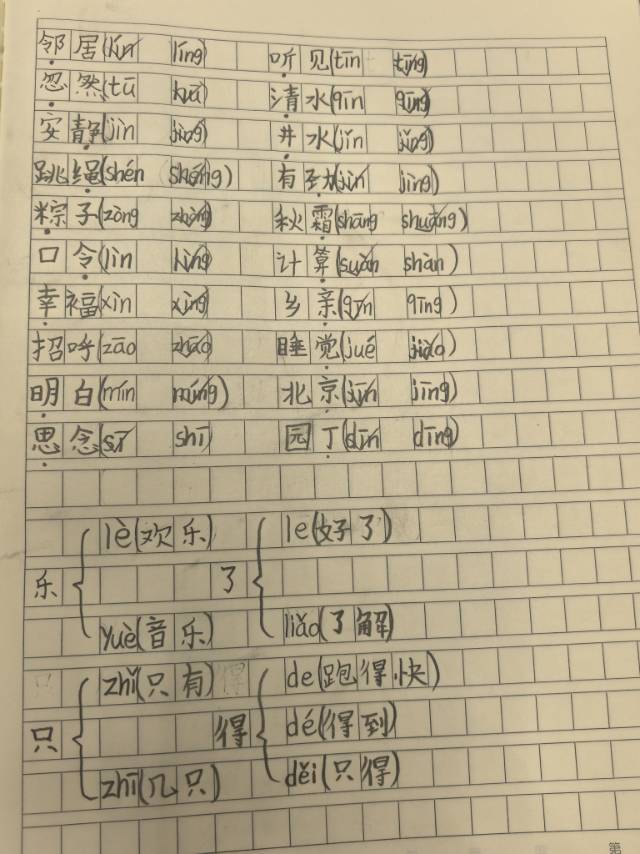 邻居(lín líng) 听见(tīn tīng)
忽然(tū hū) 清水(qīn qīng)
安静(jìn jìng) 井水(jǐn jǐng)
跳绳(shén shéng) 有劲(jìn jìng)
粽子(zòng zhòng) 秋霜(shāng shuāng)
口令(lìn lìng) 计算(suàn shàn)
幸福(xìn xìng) 乡亲(qīn qīng)
招呼(zāo zhāo) 睡觉(jué jiào)
明白(mín míng) 北京(jīn jīng)
思念(sī shī) 园丁(dīn dīng)
lè(欢乐) le(好了)
乐 了
yuè(音乐) liǎo(了解)
zhǐ(只有) de(跑得快)
只 得 dé(得到)
zhī(几只) děi(只得)
第